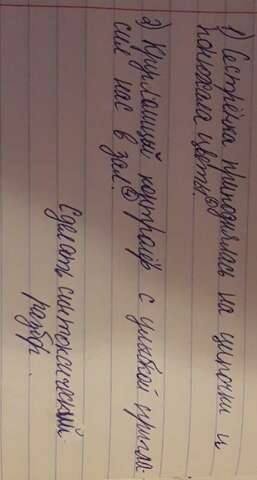 1) Сестрёнка приподнялась на цыпочки и
понюхала цветы.
2) Курносый контролёр с улыбкой пригла-
сил нас в зал.
Сделать синтаксический
разбор.